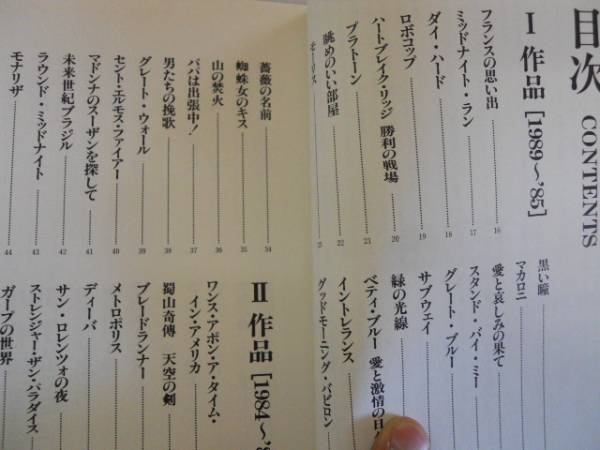 目次 CONTENTS
I 作品 [1989〜'85]
フランスの思い出 16
ミッドナイト・ラン 17
ダイ・ハード 18
ロボコップ 19
ハートブレイク・リッジ 勝利の戦場 20
プラトーン 23
眺めのいい部屋 22
モーリス 21
黒い瞳
マカロニ
愛と哀しみの果て
スタンド・バイ・ミー
グレート・ブルー
サブウェイ
緑の光線
ベティ・ブルー 愛と激情の日
イントレランス
グッドモーニング・バビロン
薔薇の名前 34
蜘蛛女のキス 35
山の焚火 36
パパは出張中! 37
男たちの挽歌 38
グレート・ウォール 39
セント・エルモス・ファイアー 40
マドンナのスーザンを探して 41
未来世紀ブラジル 42
ラウンド・ミッドナイト 43
モナリザ 44
II 作品 [1984〜'8
ワンス・アポン・ア・タイム・
イン・アメリカ
蜀山奇傳 天空の剣
ブレードランナー
メトロポリス
ディーバ
サン・ロレンツォの夜
ストレンジャー・ザン・パラダイス
ガープの世界